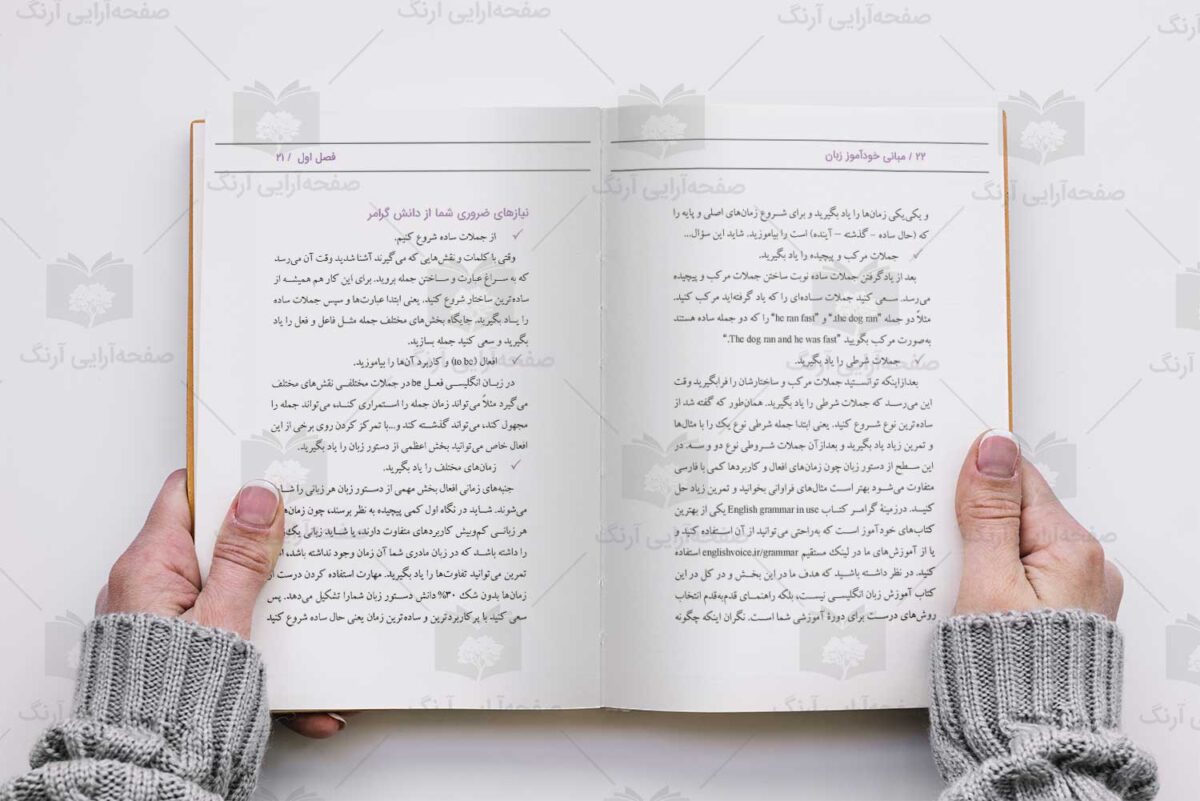 فصل اول / ۲۱
نیازهای ضروری شما از دانش گرامر
✓ از جملات ساده شروع کنیم.
وقتی با کلمات و نقش‌هایی که می‌گیرند آشنا شدید وقت آن می‌رسد
که به سراغ عبارت و ساختن جمله بروید. برای این کار هم همیشه از
ساده‌ترین ساختار شروع کنید. یعنی ابتدا عبارت‌ها و سپس جملات ساده
را یاد بگیرید. جایگاه بخش‌های مختلف جمله مثل فاعل و فعل را یاد
بگیرید و سعی کنید جمله بسازید.
✓ افعال (to be) و کاربرد آن‌ها را بیاموزید.
در زبان انگلیسی فعل be در جملات مختلفی نقش‌های مختلف
می‌گیرد مثلاً می‌تواند زمان جمله را استمراری کند، می‌تواند جمله را
مجهول کند، می‌تواند گذشته کند و...با تمرکز کردن روی برخی از این
افعال خاص می‌توانید بخش اعظمی از دستور زبان را یاد بگیرید.
✓ زمان‌های مختلف را یاد بگیرید.
جنبه‌های زمانی افعال بخش مهمی از دستور زبان هر زبانی را
می‌شوند. شاید در نگاه اول کمی پیچیده به نظر برسند، چون زمان‌های
هر زبانی کم‌وبیش کاربردهای متفاوت دارند. یا شاید زبانی یک
را داشته باشد که در زبان مادری شما آن زمان وجود نداشته باشد،
تمرین می‌توانید تفاوت‌ها را یاد بگیرید. مهارت استفاده کردن درست از
زمان‌ها بدون شک ۳۰% دانش دستور زبان شمارا تشکیل می‌دهد. پس
سعی کنید با پرکاربردترین و ساده‌ترین زمان یعنی حال ساده شروع کنید
۲۲ / مبانی خودآموز زبان
و یکی‌یکی زمان‌ها را یاد بگیرید و برای شروع زمان‌های اصلی و پایه را
که (حال ساده - گذشته – آینده) است را بیاموزید. شاید این سؤال...
✓ جملات مرکب و پیچیده را یاد بگیرید.
بعد از یاد گرفتن جملات ساده نوبت ساختن جملات مرکب و پیچیده
می‌رسد. سعی کنید جملات ساده‌ای را که یاد گرفته‌اید مرکب کنید.
مثلاً دو جمله "the dog ran." و "he ran fast" را که دو جمله ساده هستند
به‌صورت مرکب بگویید "The dog ran and he was fast."
✓ جملات شرطی را یاد بگیرید.
بعدازاینکه توانستید جملات مرکب و ساختارشان را فرابگیرید وقت
این می‌رسد که جملات شرطی را یاد بگیرید. همان‌طور که گفته شد از
ساده‌ترین نوع شروع کنید. یعنی ابتدا جمله شرطی نوع یک را با مثال‌ها
و تمرین زیاد یاد بگیرید و بعدازآن جملات شروطی نوع دو و سه. در
این سطح از دستور زبان چون زمان‌های افعال و کاربردها کمی با فارسی
متفاوت می‌شود بهتر است مثال‌های فراوانی بخوانید و تمرین زیاد حل
کنید. درزمینهٔ گرامر کتاب English grammar in use یکی از بهترین
کتاب‌های خودآموز است که به‌راحتی می‌توانید از آن استفاده کنید و
یا از آموزش‌های ما در لینک مستقیم englishvoice.ir/grammar استفاده
کنید. در نظر داشته باشید که هدف ما در این بخش و در کل در این
کتاب آموزش زبان انگلیسی نیست، بلکه راهنمای قدم‌به‌قدم انتخاب
روش‌های درست برای دورهٔ آموزشی شما است. نگران اینکه چگونه
صفحه‌آرایی آرنگ